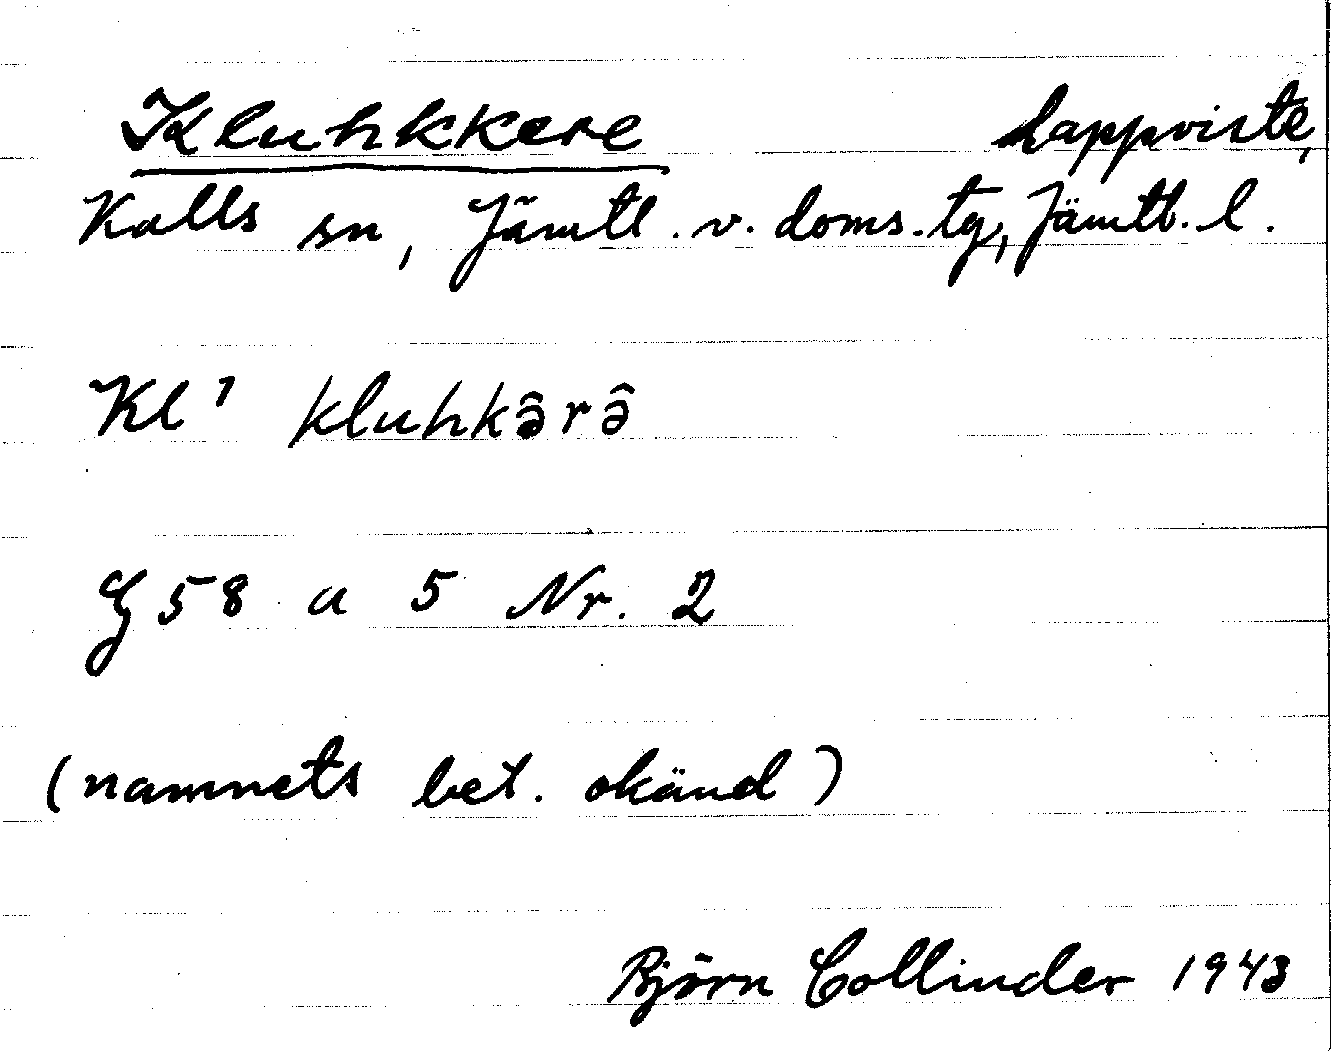 Kluhkkere lappviste,
Kalls sn, Jämtl. v. doms. tg, Jämtl. l.
Kl 1 kluhkə̂rə̂
G 58 a 5 Nr. 2
(namnets bet. okänd)
Björn Collinder 1943